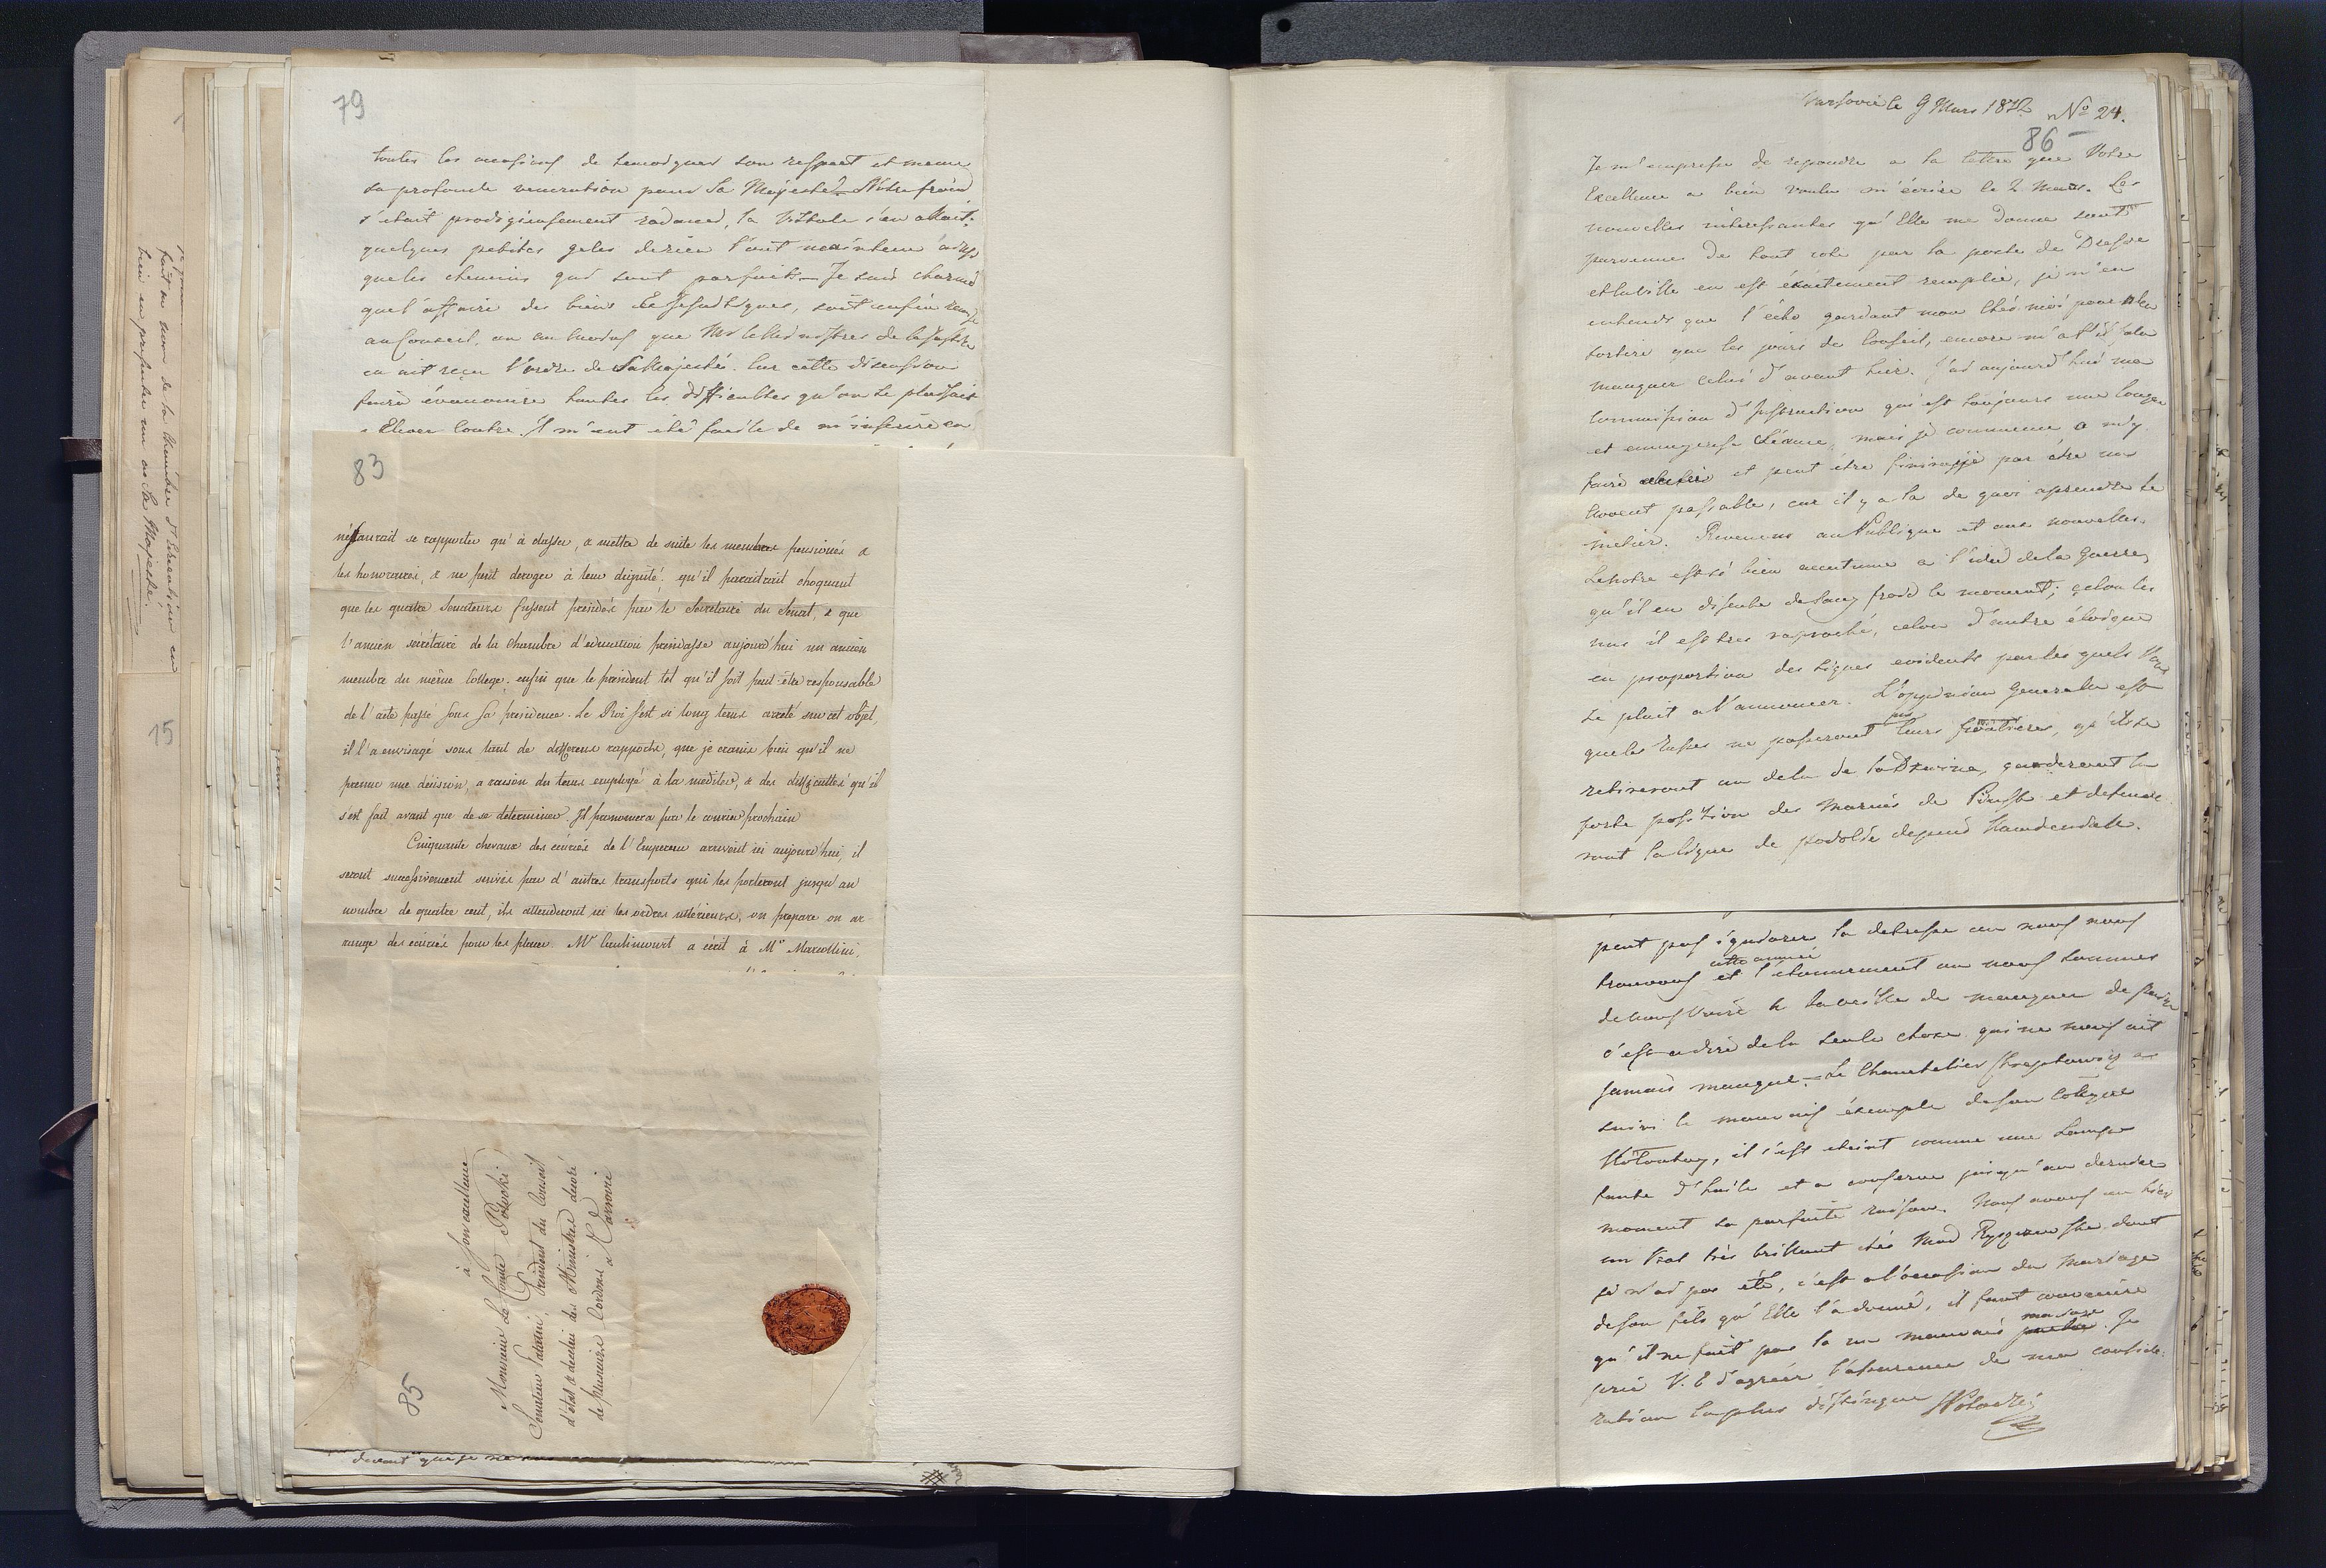 79
toutes les occasions de temoigner son respect et meme
sa profonde veneration pour Sa Majesté. Nôtre froid
s'etait prodigieusement radouci, la Vistule s'en allait,
quelques petites gelés
que les chemins qui sont parfaits. Je suis charmé
que l'affaire des biens soit enfin
au Conseil, ou au moins que Mr le Ministre de la Justice
en ait reçu l'ordre de Sa Majesté. Car cette discussion
faira évanouir toutes les difficultes qu'on se plaisait
a Elever contre. Il m'eut été facile de m'inserire en
83
ne saurait se rapporter qu'à classer, a mettre de suite les membres pensionés &
les honoraires, & ne peut deroger à leur dignité; qu'il paraitrait choquant
que les quatre Senateurs fussent presidés par le Secretaire du Senat, & que
l'ancien sécrétaire de la Chambre d'education presidasse aujourd'hui un ancien
membre du même College; enfin que le président tel qu'il soit peut être responsable
de l'acte passé sous sa presidence. Le Roi s'est si long tems arreté sur cet objet,
il l'a envisagé sous tant de differens rapports, que je crains bien qu'il ne
prenne une décision, a raison du tems employé à la mediter, & des difficultes qu'il
s'est fait avant que de se determiner. Il prononcera par le courier prochain
Cinquante chevaux des écuries de l'Empereur arrivent ici aujourd'hui, il
seront successivement suivis par d'autres transports qui les porteront jusqu'au
nombre de quatre cent, ils attenderont ici les ordres ultérieurs, on prepare on ar-
range des écuries pour les placer. Mr Caulincourt a écrit à Mr Marcollini,
à Son excellence
Monsieur Le Comte Potocki
Senateur Palatin, Président du Conseil
d'état & de celui des Ministres décoré
de plusieurs Cordons
à Varsovie
85
fait au nom de la Chambre d'Education en
bien en presenter un au Sa Majesté.
75
devant que je ne
Varsovie le 9 Mars 1812 No 24.
86
Je m'empresse de repondre a la lettre que Votre
Excellence a bien voulu m'écrire le 2 Mars. Les
nouvelles interessantes qu'Elle me donne sont
parvenues de tout coté par la poste de Dresde
et la ville en est éxactement remplie, je n'en
entends que l'écho gardant mon chés moi pour ne
sortir que les jours de Conseil, encore m'a t'il falu
manquer celui d'avant hier. J'ai aujourd'hui ma
Commission d'Instruction qui est toujours une longue
et ennuyeuse Séance, mais je commence a m'y
faire et peut être finiraije par être un
Avocat passable, car il y a la de quoi aprendre le
metier. Revenons au Publique et aux nouvelles.
Le notre est si bien accoutumé a l'idée de la Guerre,
qu'il en discute de sang froid le moment; selon les
uns il est tres raproché, celon d'autre éloigné
en proportion des signes evidents par les quels
se plait a l'annoncer. L'oppinion Generale est
que les Russes ne passeront pas leurs frontieres, qu'ils se
retireront au dela de la Dzwina, garderont la
forte position des Marais de Pinsk et defende
ront la ligne de podolie depuis Kamendeck.
peut pas ignorer la detresse ou nous nous
trouvons cette année et l'étonnement ou nous sommes
de nous voir a la veille de manquer de pain
c'est-a dire de la seule chose qui ne nous ait
jamais manqué. Le Chambelier a
suivi le mauvais éxemple de son Collegue
il s'est eteint comme une Lampe
faute d'huile et a conservé jusqu'au dernier
moment sa parfaite raison. Nous avons eu hier
un Bal très brillant chés Mad dont
je n'ai pas été, c'est a l'occasion du Mariage
de son fils qu'Elle l'a donné, il faut convenir
qu'il ne fait pas la un mauvais mariage. Je
prie V. E d'agréer l'assurance de ma conside-
ration la plus distingué SPotocki